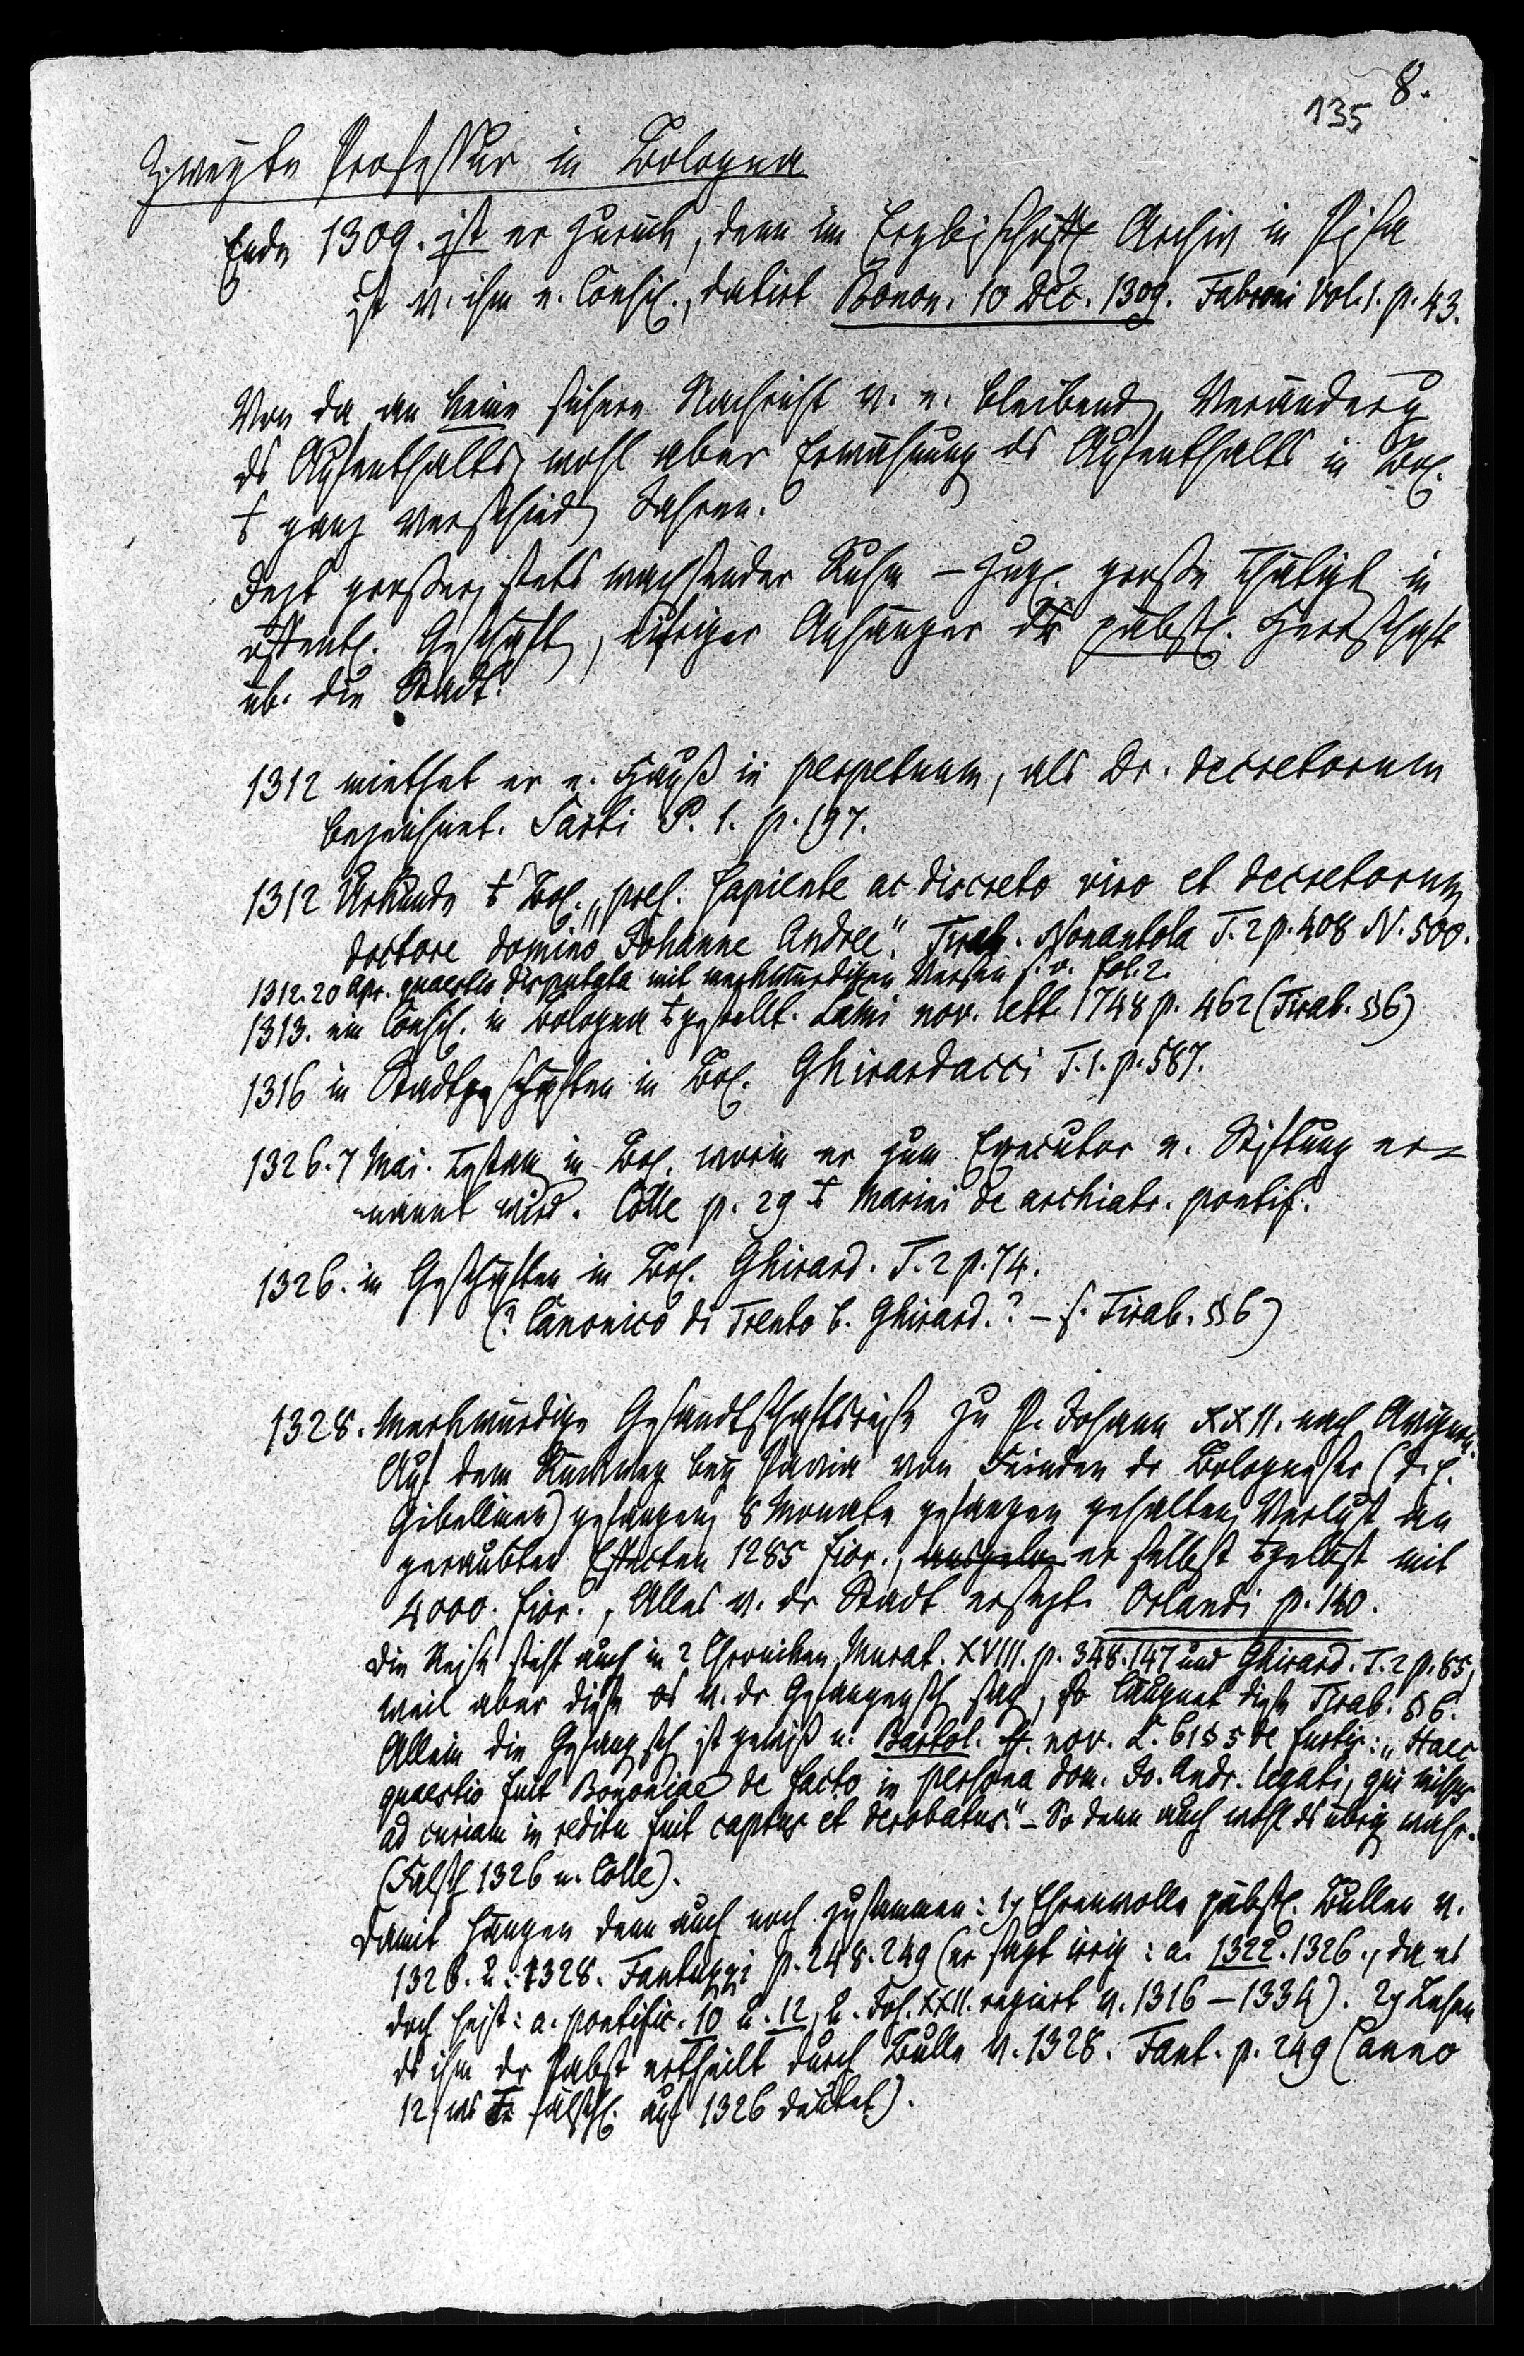 8.
135
Zweyte Professur in Bologna
Ende 1309. ist er zurück, denn im Erzbischöfl. Archiv in Pisa
ist v. ihm e. Consil., datirt Bonon. 10 Dec. 1309. Fabroni Vol. 1. p. 43.
Von da an keine sichere Nachricht v. e. bleibend. Veränderg
ds Aufenthalts, wohl aber Erwähnung ds Aufenthalts in Bol.
ganz verschied. Jahren.
Jezt großer, stets wachsender Ruhm – zugl. große Thätigk. in
öffentl. Geschäft., eifriger Anhänger dr päbstl. Herrschaft
üb. die Stadt.
1312 miethet er e. Hauß in perpetuum, als Dr. decretorum
bezeichnet. Sarti P. 1. p. 197.
1312 Urkunde Bol. „pres. sapiente ac discreto viro et decretorum
doctore domino Johanne Andree". Tirab. Nonantola T. 2 p. 408 N. 500.
1312. 20 Apr. quaestio disputata mit merkwürdigen Versen s. o. fol. 2.
1313. ein Consil. in Bologna gestellt. Lami nov. lett. 1748 p. 462 (Tirab. §6)
1316 in Stadtgeschäften in Bol. Ghirardacci T. 1. p. 587.
1326. 7 Mai. Testam. in Bol. worin er zum Executor e. Stiftung er=
nannt wird. Colle p. 29 Marini de archiatr. pontif.
1326. in Geschäften in Bol. Ghirard. T. 2 p. 74.
(? Canonico di Trento b. Ghirard.? – s. Tirab. §6)
1328. Merkwürdige Gesandtschaftsreise zu P. Johann XXII. nach Avignon.
Auf dem Rückweg bey Pavia von Feinden dr Bologneser (d. h.
Gibellinen) gefangen, 8 Monate gefangen gehalten, Verlust an
geraubten Effecten 1285 fior., ausgelös er selbst gelöst mit
4000. fior., Alles v. dr Stadt ersezt. Orlandi p. 140.
Die Reise steht auch in 2 Chroniken Murat. XVIII. p. 348. 147 und Ghirard. T. 2 p. 85,
weil aber diese v. dr Gefangensch. so läugnet diese Tirab. §6.
Allein die Gefangsch. ist gewiß n. Bartol. ff. nov. L. 61 § 5 de furtis: „Haec
quaestio fuit Bononiae de facto in persona dom. Jo. Andr. legati, qui missus
ad curiam in reditu fuit captus et derobatus." – So denn auch wohl ds übrig. wahr.
(Falsch 1326 n. Colle).
Damit hängen denn auch noch zusammen: 1) Ehrenvolle päbstl. Bullen v.
1326. u. 1328. Fantuzzi p. 248. 249 (er sagt irrig: a. 1322. 1326., da es
doch heißt: a. pontific. 10 u. 12, u. Joh. XXII. regiert v. 1316 – 1334). 2) Lehen
ds ihm dr Pabst ertheilt durch Bulle v. 1328. Fant. p. 249 (anno
12, fälschl. auf 1326 deutet).